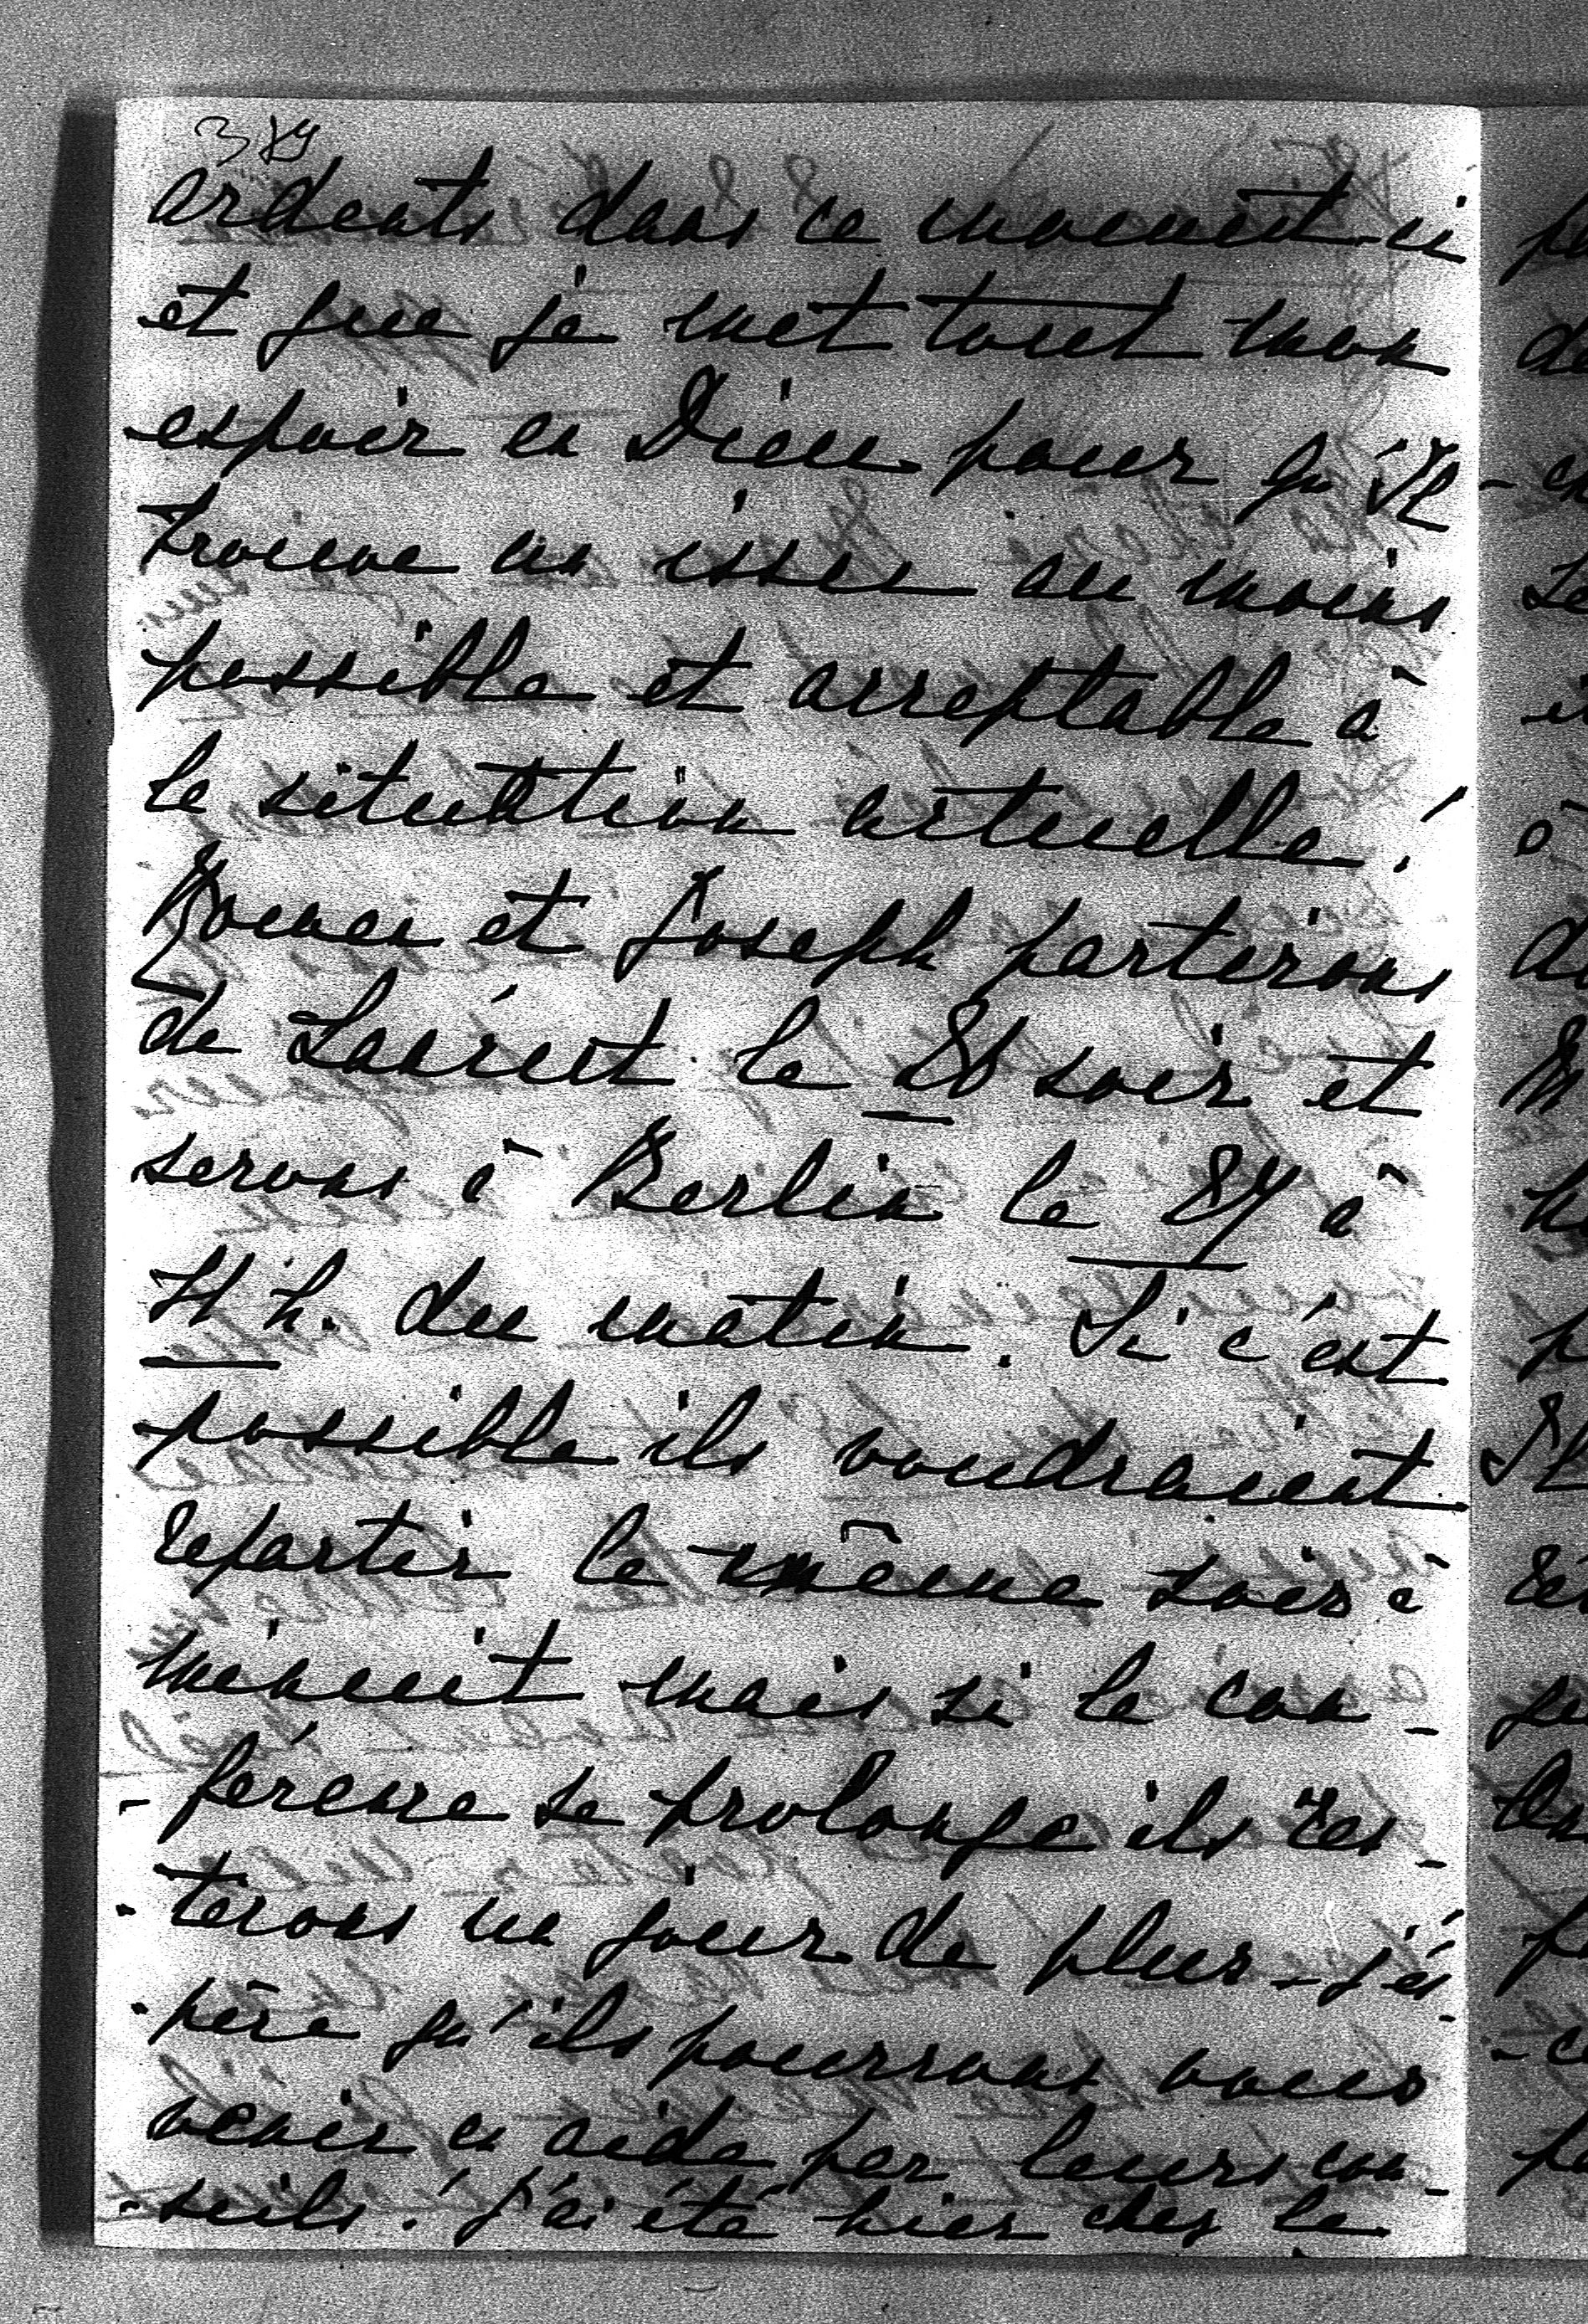 ardents dans ce moment-ci
et que je met tout mon
espoir en Dieu pour qu'Il
trouve un issu au moins
possible et acceptable à
la situation actuelle!
et Joseph partirons
de le soir et
serons à Berlin le à
h. du matin. Si c'est
possible ils voudraient
repartir le même soir à
minuit mais si la con-
-ference se prolonge ils res-
-terons un jour de plus - j'és-
-père qu'ils pourrons vous
venir en aide par leurs con-
-seils! J'ai été hier chez la